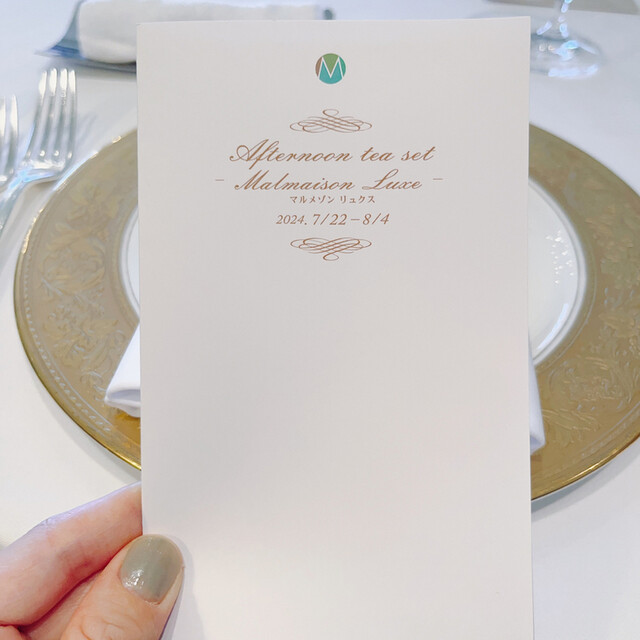 M
Afternoon tea set
– Malmaison Luxe –
マルメゾン リュクス
2024. 7/22－8/4